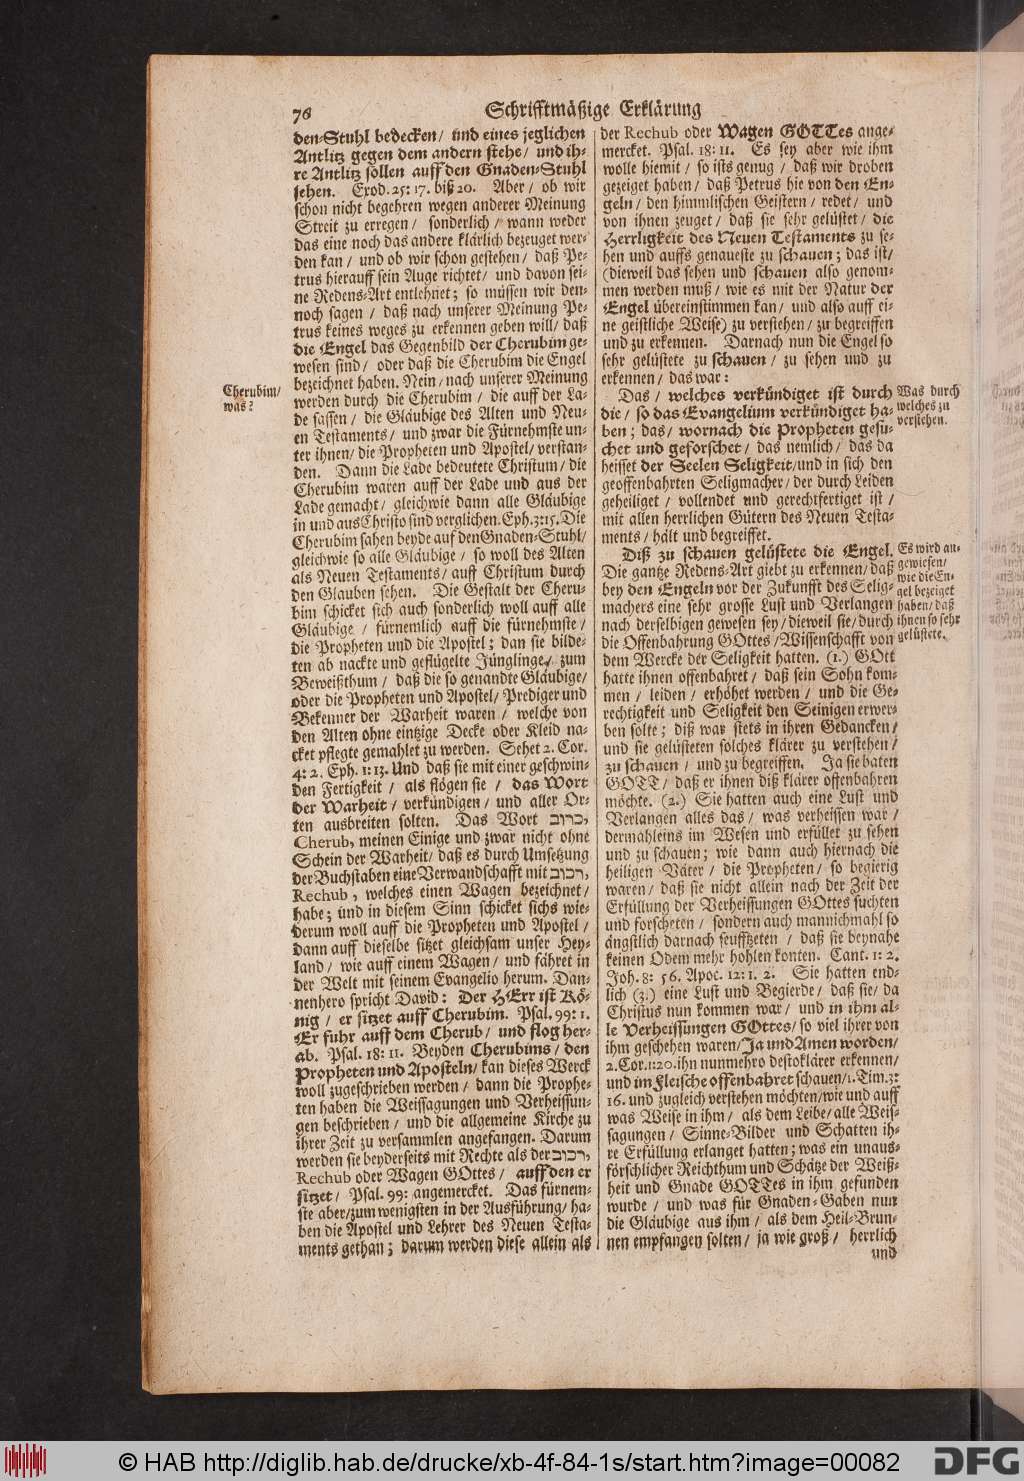 76
Schrifftmäßige Erklärung
den-Stuhl bedecken/ und eines jeglichen
Antlitz gegen dem andern stehe/ und ih-
re Antlitz sollen auff den Gnaden-Stuhl
sehen. Exod. 25: 17. biß 20. Aber/ ob wir
schon nicht begehren wegen anderer Meinung
Streit zu erregen/ sonderlich/ wann weder
das eine noch das andere klärlich bezeuget wer-
den kan/ und ob wir schon gestehen/ daß Pe-
trus hierauff sein Auge richtet/ und davon sei-
ne Redens-Art entlehnet; so müssen wir den-
noch sagen/ daß nach unserer Meinung Pe-
trus keines weges zu erkennen geben will/ daß
die Engel das Gegenbild der Cherubim ge-
wesen sind/ oder daß die Cherubim die Engel
bezeichnet haben. Nein/ nach unserer Meinung
werden durch die Cherubim/ die auff der La-
de sassen/ die Gläubige des Alten und Neu-
en Testaments/ und zwar die Fürnehmste un-
ter ihnen/ die Propheten und Apostel/ verstan-
den. Dann die Lade bedeutete Christum/ die
Cherubim waren auff der Lade und aus der
Lade gemacht/ gleichwie dann alle Gläubige
in und aus Christo sind verglichen. Eph. 3: 15. Die
Cherubim sahen beyde auf den Gnaden-Stuhl/
gleichwie so alle Gläubige/ so woll des Alten
als Neuen Testaments/ auff Christum durch
den Glauben sehen. Die Gestalt der Cheru-
bim schicket sich auch sonderlich woll auff alle
Gläubige/ fürnemlich auff die fürnehmste/
die Propheten und die Apostel; dan sie bilde-
ten ab nackte und geflügelte Jünglinge/ zum
Beweißthum/ daß die so genandte Gläubige/
oder die Propheten und Apostel/ Prediger und
Bekenner der Warheit waren/ welche von
den Alten ohne eintzige Decke oder Kleid na-
cket pflegte gemahlet zu werden. Sehet 2. Cor.
4: 2. Eph. 1: 13. Und daß sie mit einer geschwin-
den Fertigkeit/ als flögen sie/ das Wort
der Warheit/ verkündigen/ und aller Or-
ten ausbreiten solten. Das Wort כרוב,
Cherub, meinen Einige und zwar nicht ohne
Schein der Warheit/ daß es durch Umsetzung
der Buchstaben eine Verwandschafft mit רכוב,
Rechub, welches einen Wagen bezeichnet/
habe; und in diesem Sinn schicket sichs wie-
derum woll auff die Propheten und Apostel/
dann auff dieselbe sitzet gleichsam unser Hey-
land/ wie auff einem Wagen/ und fähret in
der Welt mit seinem Evangelio herum. Dan-
nenhero spricht David: Der HErr ist Kö-
nig/ er sitzet auff Cherubim. Psal. 99: 1.
Er fuhr auff dem Cherub/ und flog her-
ab. Psal. 18: 11. Beyden Cherubims/ den
Propheten und Aposteln/ kan dieses Werck
woll zugeschrieben werden/ dann die Prophe-
ten haben die Weissagungen und Verheissun-
gen beschrieben/ und die allgemeine Kirche zu
ihrer Zeit zu versammlen angefangen. Darum
werden sie beyderseits mit Rechte als der רכוב,
Rechub oder Wagen GOttes/ auff den er
sitzet/ Psal. 99: angemercket. Das fürnem-
ste aber/ zum wenigsten in der Ausführung/ ha-
ben die Apostel und Lehrer des Neuen Testa-
ments gethan; darum werden diese allein als
Cherubim/
was?
der Rechub oder Wagen GOTTes ange-
mercket. Psal. 18: 11. Es sey aber wie ihm
wolle hiemit/ so ists genug/ daß wir droben
gezeiget haben/ daß Petrus hie von den En-
geln/ den himmlischen Geistern/ redet/ und
von ihnen zeuget/ daß sie sehr gelüstet/ die
Herrligkeit des Neuen Testaments zu se-
hen und auffs genaueste zu schauen; das ist/
(dieweil das sehen und schauen also genom-
men werden muß/ wie es mit der Natur der
Engel übereinstimmen kan/ und also auff ei-
ne geistliche Weise) zu verstehen/ zu begreiffen
und zu erkennen. Darnach nun die Engel so
sehr gelüstete zu schauen/ zu sehen und zu
erkennen/ das war:
Das/ welches verkündiget ist durch
die/ so das Evangelium verkündiget ha-
ben; das/ wornach die Propheten gesu-
chet und geforschet/ das nemlich/ das da
heisset der Seelen Seligkeit/ und in sich den
geoffenbahrten Seligmacher/ der durch Leiden
geheiliget/ vollendet und gerechtfertiget ist/
mit allen herrlichen Gütern des Neuen Testa-
ments/ hält und begreiffet.
Diß zu schauen gelüstete die Engel.
Die gantze Redens-Art giebt zu erkennen/ daß
bey den Engeln vor der Zukunfft des Selig-
machers eine sehr grosse Lust und Verlangen
nach derselbigen gewesen sey/ dieweil sie/ durch
die Offenbahrung GOttes/ Wissenschafft von
dem Wercke der Seligkeit hatten. (1.) GOtt
hatte ihnen offenbahret/ daß sein Sohn kom-
men/ leiden/ erhöhet werden/ und die Ge-
rechtigkeit und Seligkeit den Seinigen erwer-
ben solte; diß war stets in ihren Gedancken/
und sie gelüsteten solches klärer zu verstehen/
zu schauen/ und zu begreiffen. Ja sie baten
GOTT/ daß er ihnen diß klärer offenbahren
möchte. (2.) Sie hatten auch eine Lust und
Verlangen alles das/ was verheissen war/
dermahleins im Wesen und erfüllet zu sehen
und zu schauen; wie dann auch hiernach die
heiligen Väter/ die Propheten/ so begierig
waren/ daß sie nicht allein nach der Zeit der
Erfüllung der Verheissungen GOttes suchten
und forscheten/ sondern auch mannichmahl so
ängstlich darnach seufftzeten/ daß sie beynahe
keinen Odem mehr hohlen konten. Cant. 1: 2.
Joh. 8: 56. Apoc. 12: 1. 2. Sie hatten end-
lich (3.) eine Lust und Begierde/ daß sie/ da
Christus nun kommen war/ und in ihm al-
le Verheissungen GOttes/ so viel ihrer von
ihm geschehen waren/ Ja und Amen worden/
2. Cor. 1: 20. ihn nunmehro desto klärer erkennen/
und im Fleische offenbahret schauen/ 1. Tim. 3:
16. und zugleich verstehen möchten/ wie und auff
was Weise in ihm/ als dem Leibe/ alle Weis-
sagungen/ Sinne-Bilder und Schatten ih-
re Erfüllung erlanget hatten; was ein unaus-
förschlicher Reichthum und Schätze der Weiß-
heit und Gnade GOTTes in ihm gefunden
wurde/ und was für Gnaden-Gaben nun
die Gläubige aus ihm/ als dem Heil-Brun-
nen empfangen solten/ ja wie groß/ herrlich
und
Was durch
welches zu
verstehen.
Es wird an-
gewiesen/
wie die En-
gel bezeiget
haben/ daß
ihnen so sehr
gelüstete.
© HAB http://diglib.hab.de/drucke/xb-4f-84-1s/start.htm?image=00082
DFG